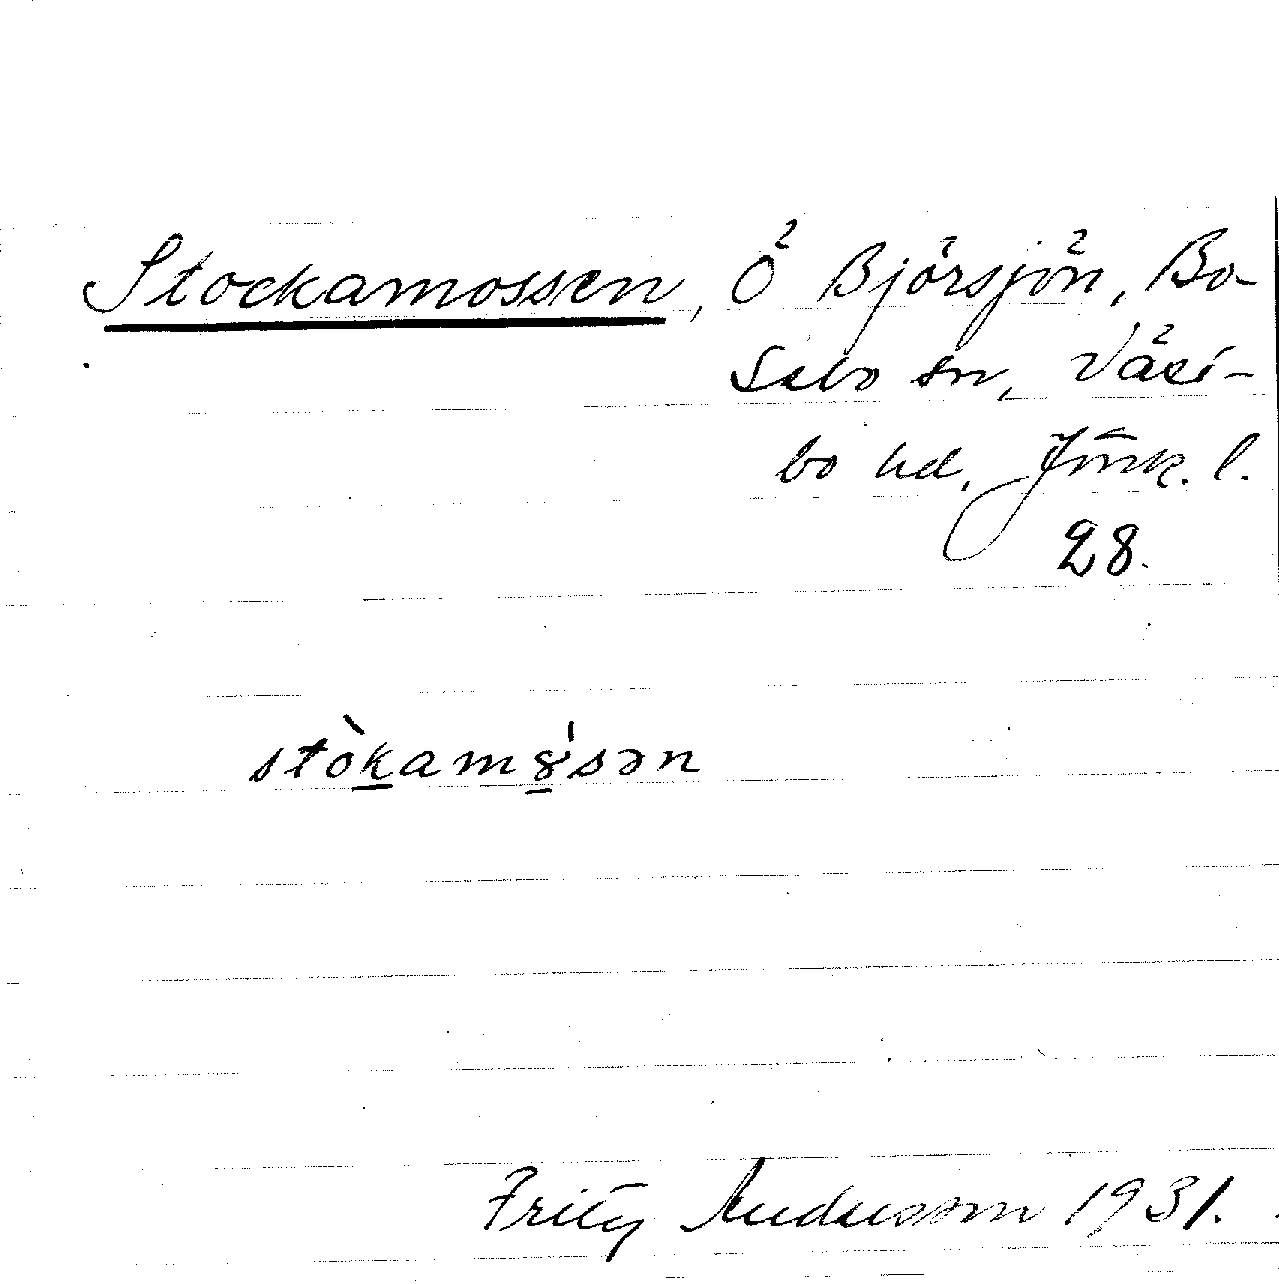 Stockamossen, Ö Björsjön, Bo-
sebo sn, Västi-
bo hd, Jönk. l.
28.
stòkamö̲sən
Fritz Andersson 1931.